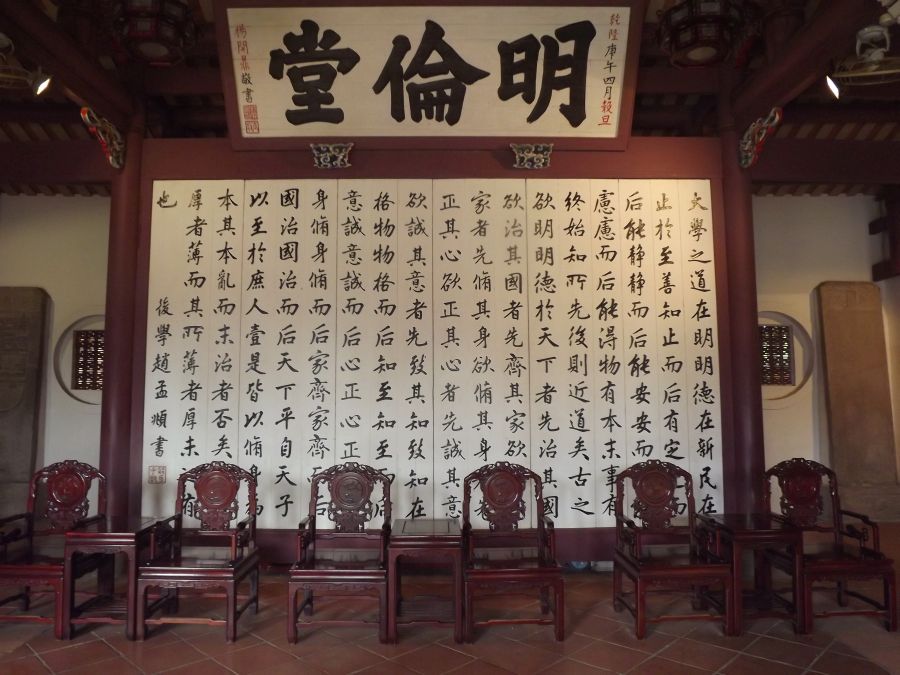 乾隆庚午四月穀旦
明倫堂
楊開鼎敬書
大學之道在明明德在新民在
止於至善知止而后有定二而
后能静静而后能安安而
慮慮而后能得物有本末事有
終始知所先後則近道矣古之
欲明明德於天下者先治其國
欲治其國者先齊其家欲
家者先脩其身欲脩其身
正其心欲正其心者先誠其意
欲誠其意者先致其知致知在
格物物格而后知至知至而后
意誠意誠而后心正心正
身脩身脩而后家齊家齊而后
國治國治而后天下平自天子
以至於庶人壹是皆以脩身為
本其本亂而末治者否矣
厚者薄而其所薄者厚未
也
後學趙孟頫書